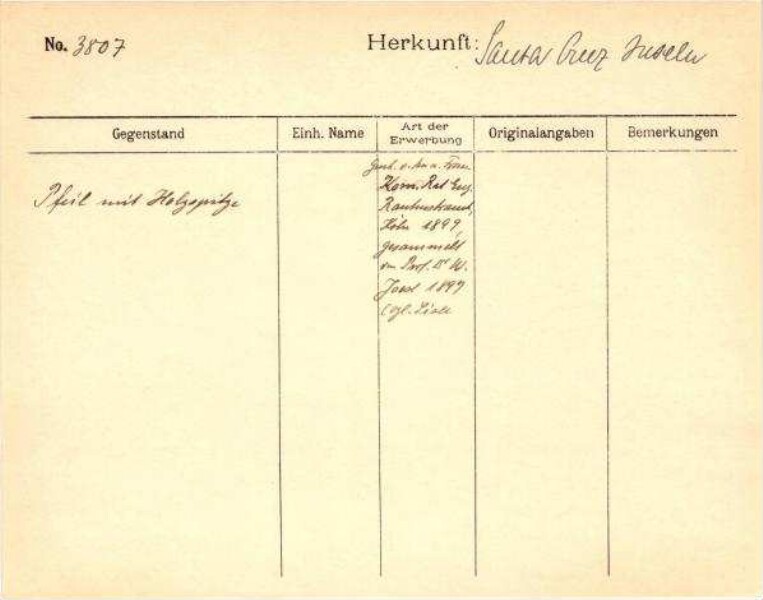 No. 3807
Herkunft: Santa Cruz Inseln
Gegenstand
Einh. Name
Art der
Erwerbung
Originalangaben
Bemerkungen
Pfeil mit Holzspitze
Gesch. v. Frau
Kom. Rat Eug.
Rautenstrauch,
Köln 1899,
gesammelt
von Prof. Dr W.
Joest 1897
Liste